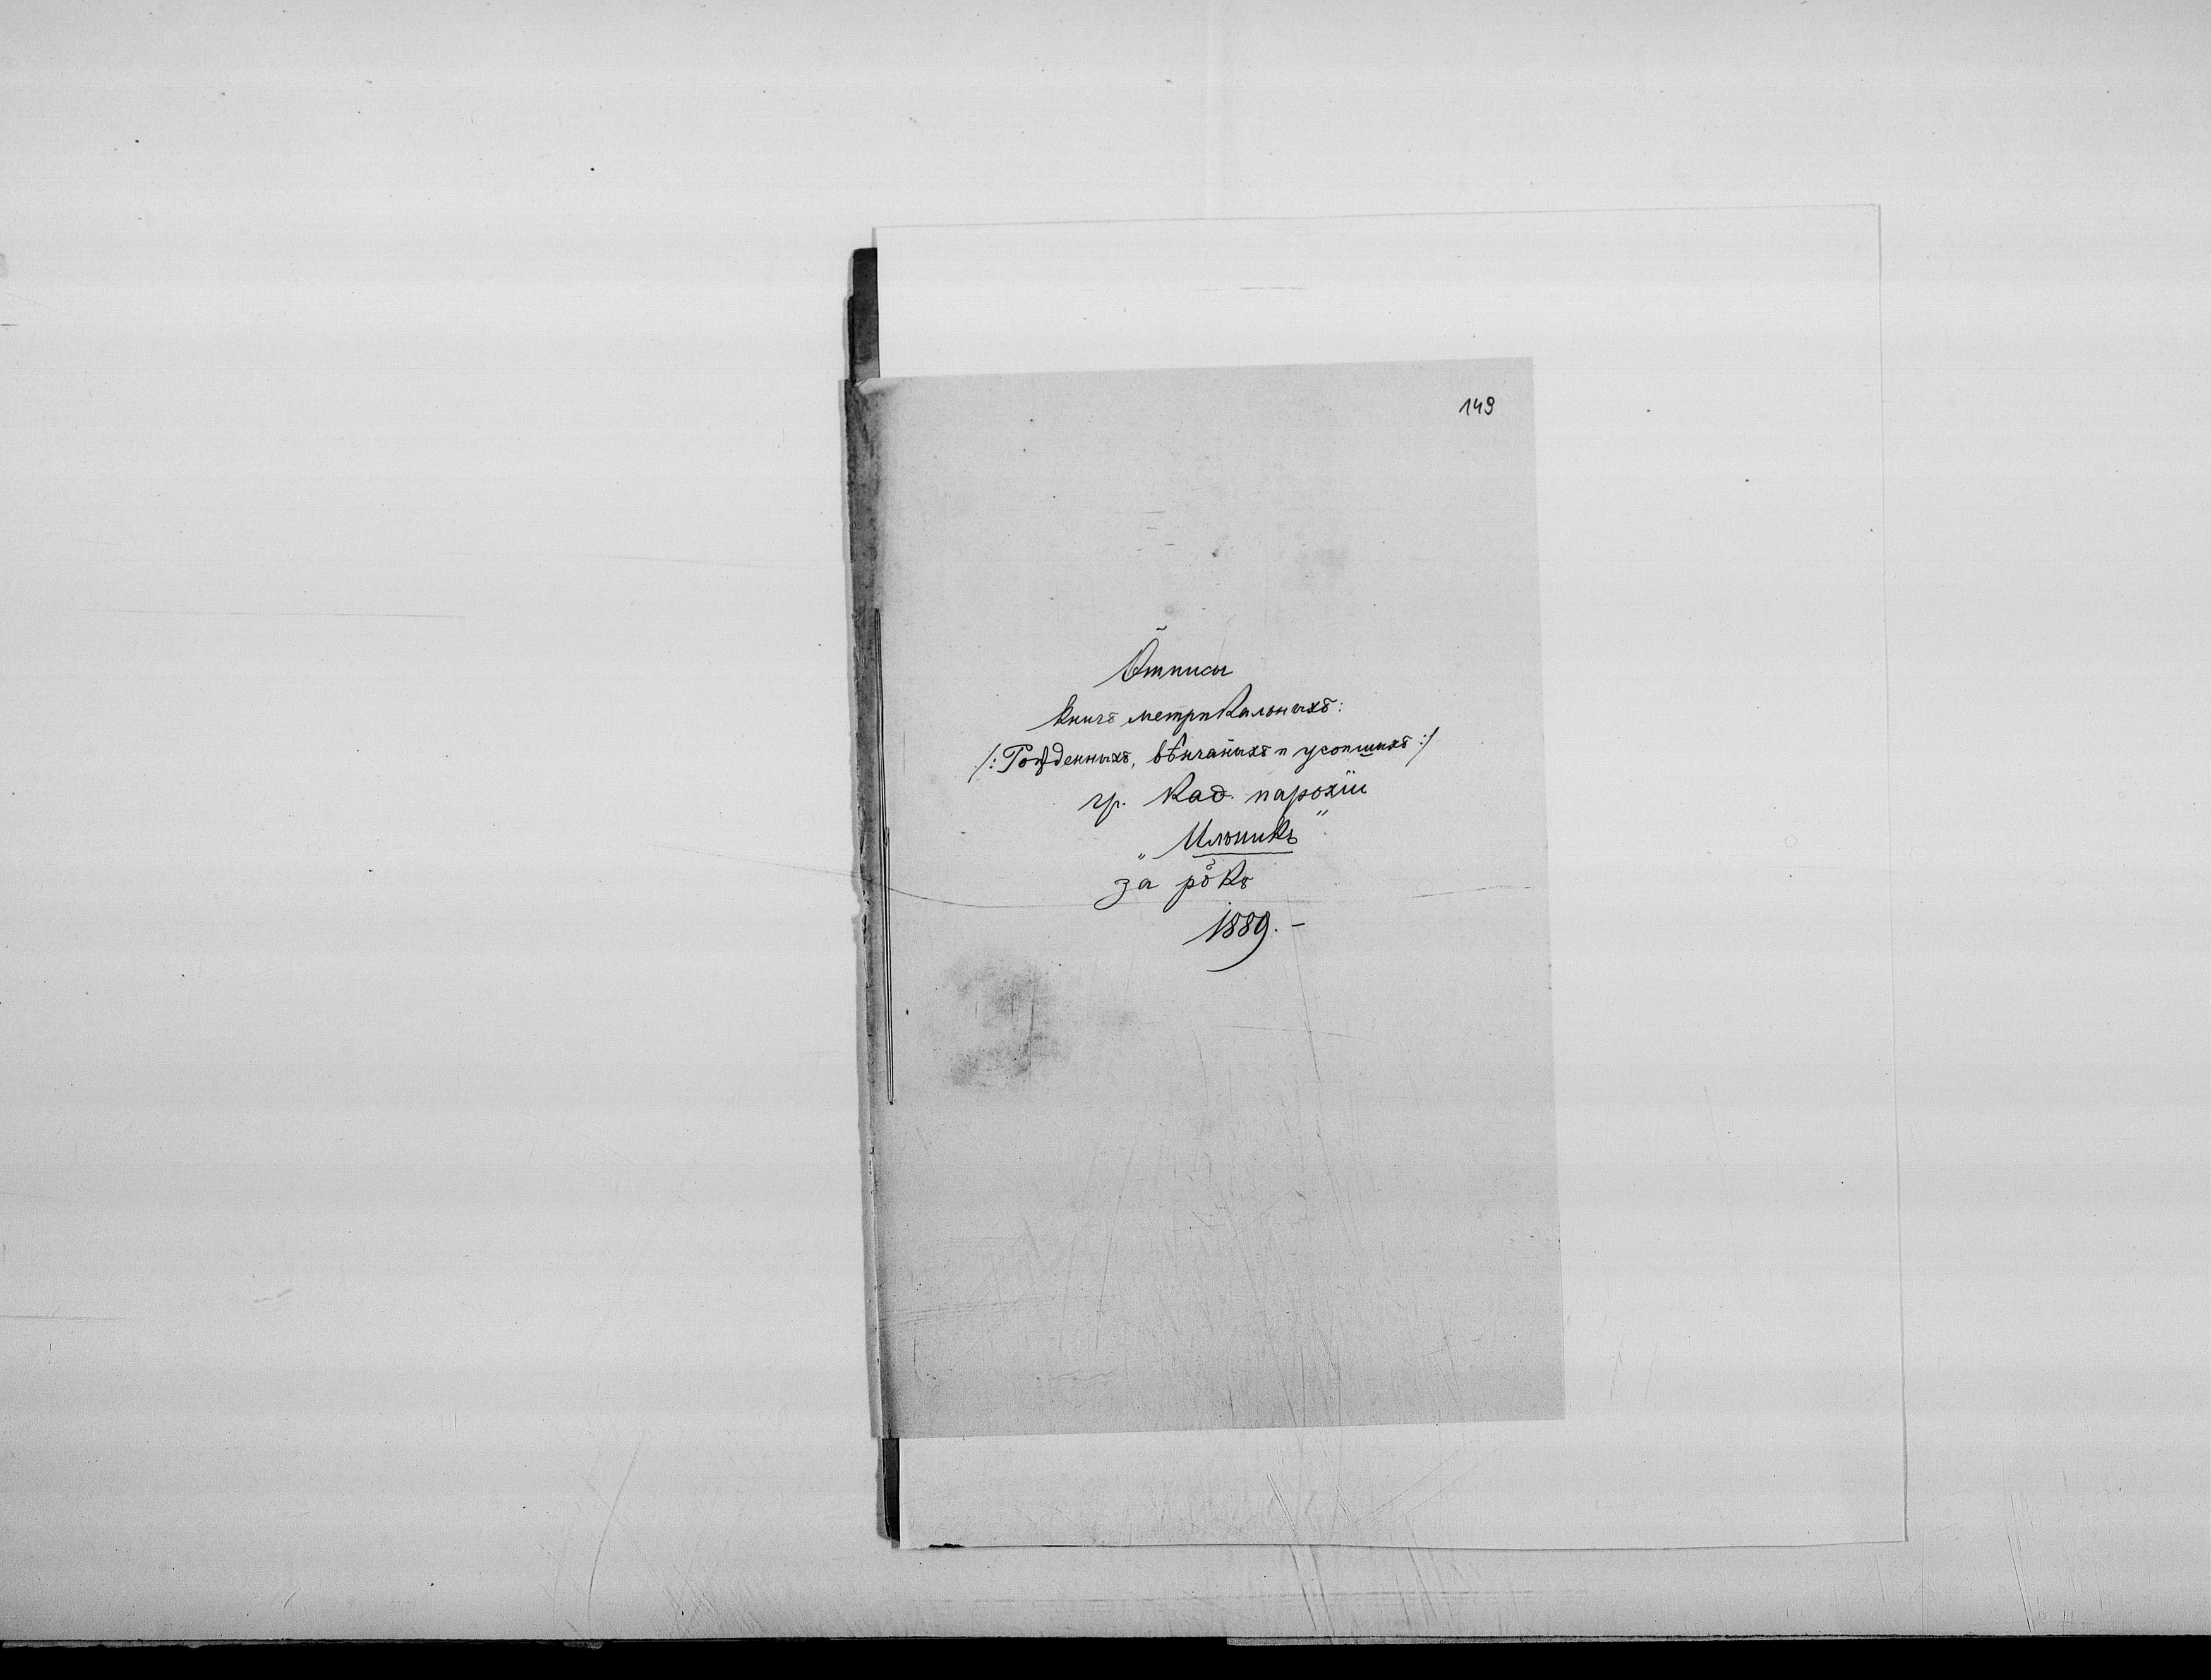 149
Ѿтписы
книгъ метрикальныхъ:
/: Рожденныхъ, вѣнчаныхъ и усопшихъ :/
гр. кад. парохіи
„Ильникъ"
за рôкъ
1889. –